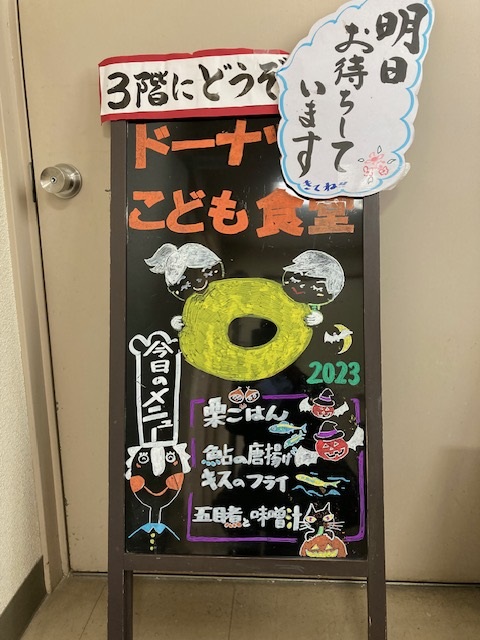 3階にどうぞ
明日
お待ちして
います
きくね〜
ドーナツ
こども食堂
2023
今日のメニュー
栗ごはん
鮎の唐揚げ
キスのフライ
五目煮と味噌汁